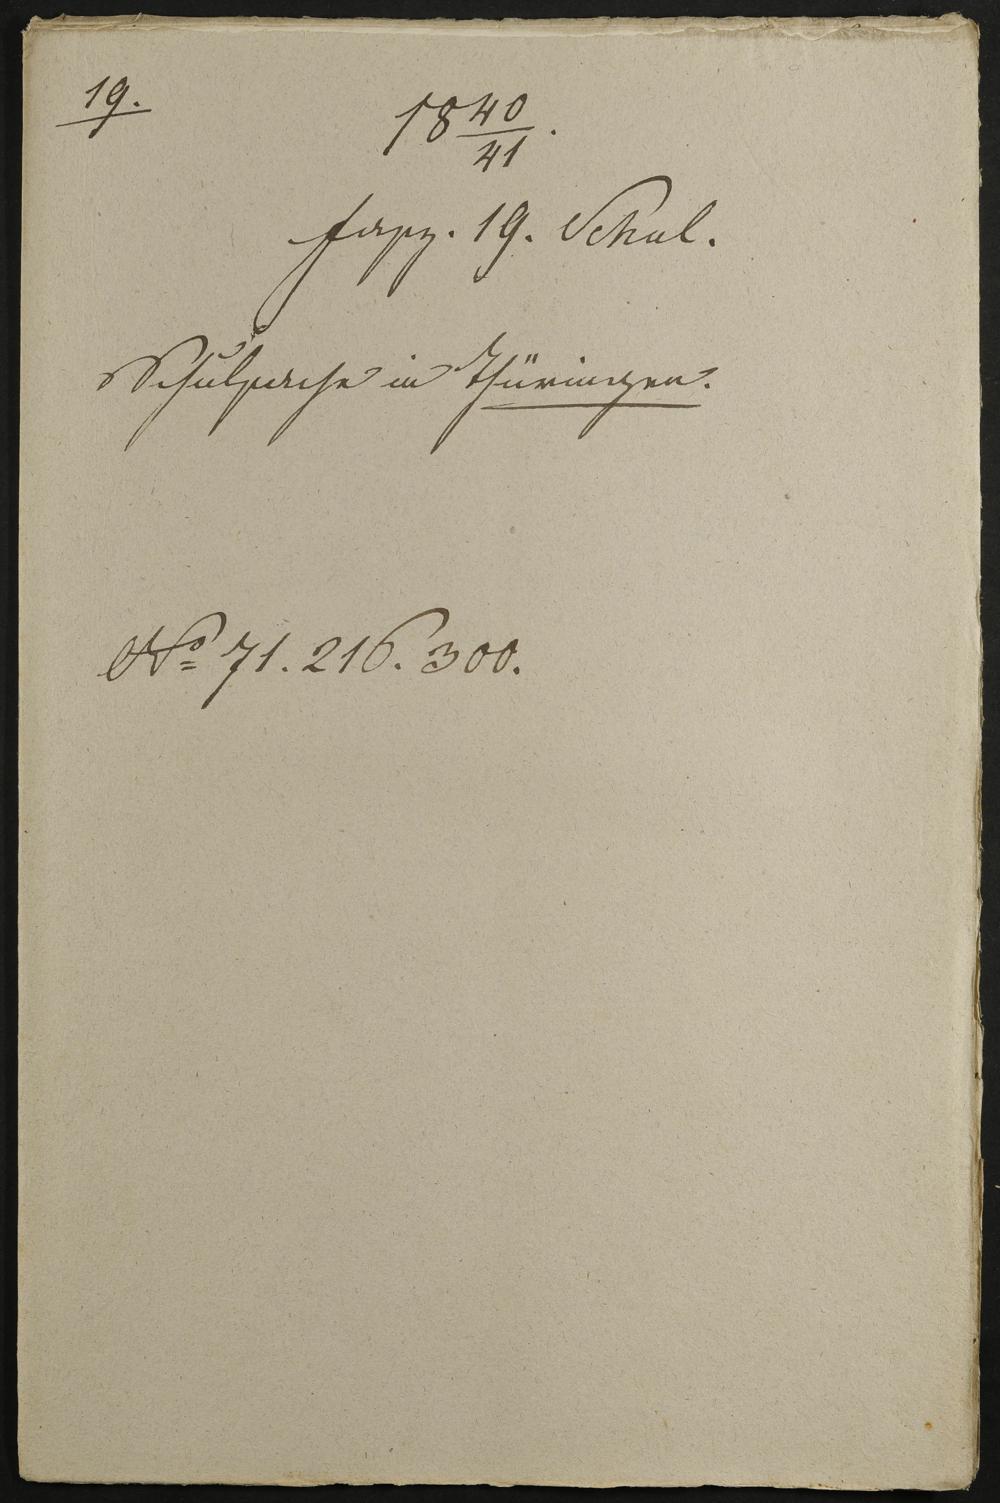 19.
18 40/41.
Fasz. 19. Schul.
Schulsache in Thüringen.
No 71. 216. 300.